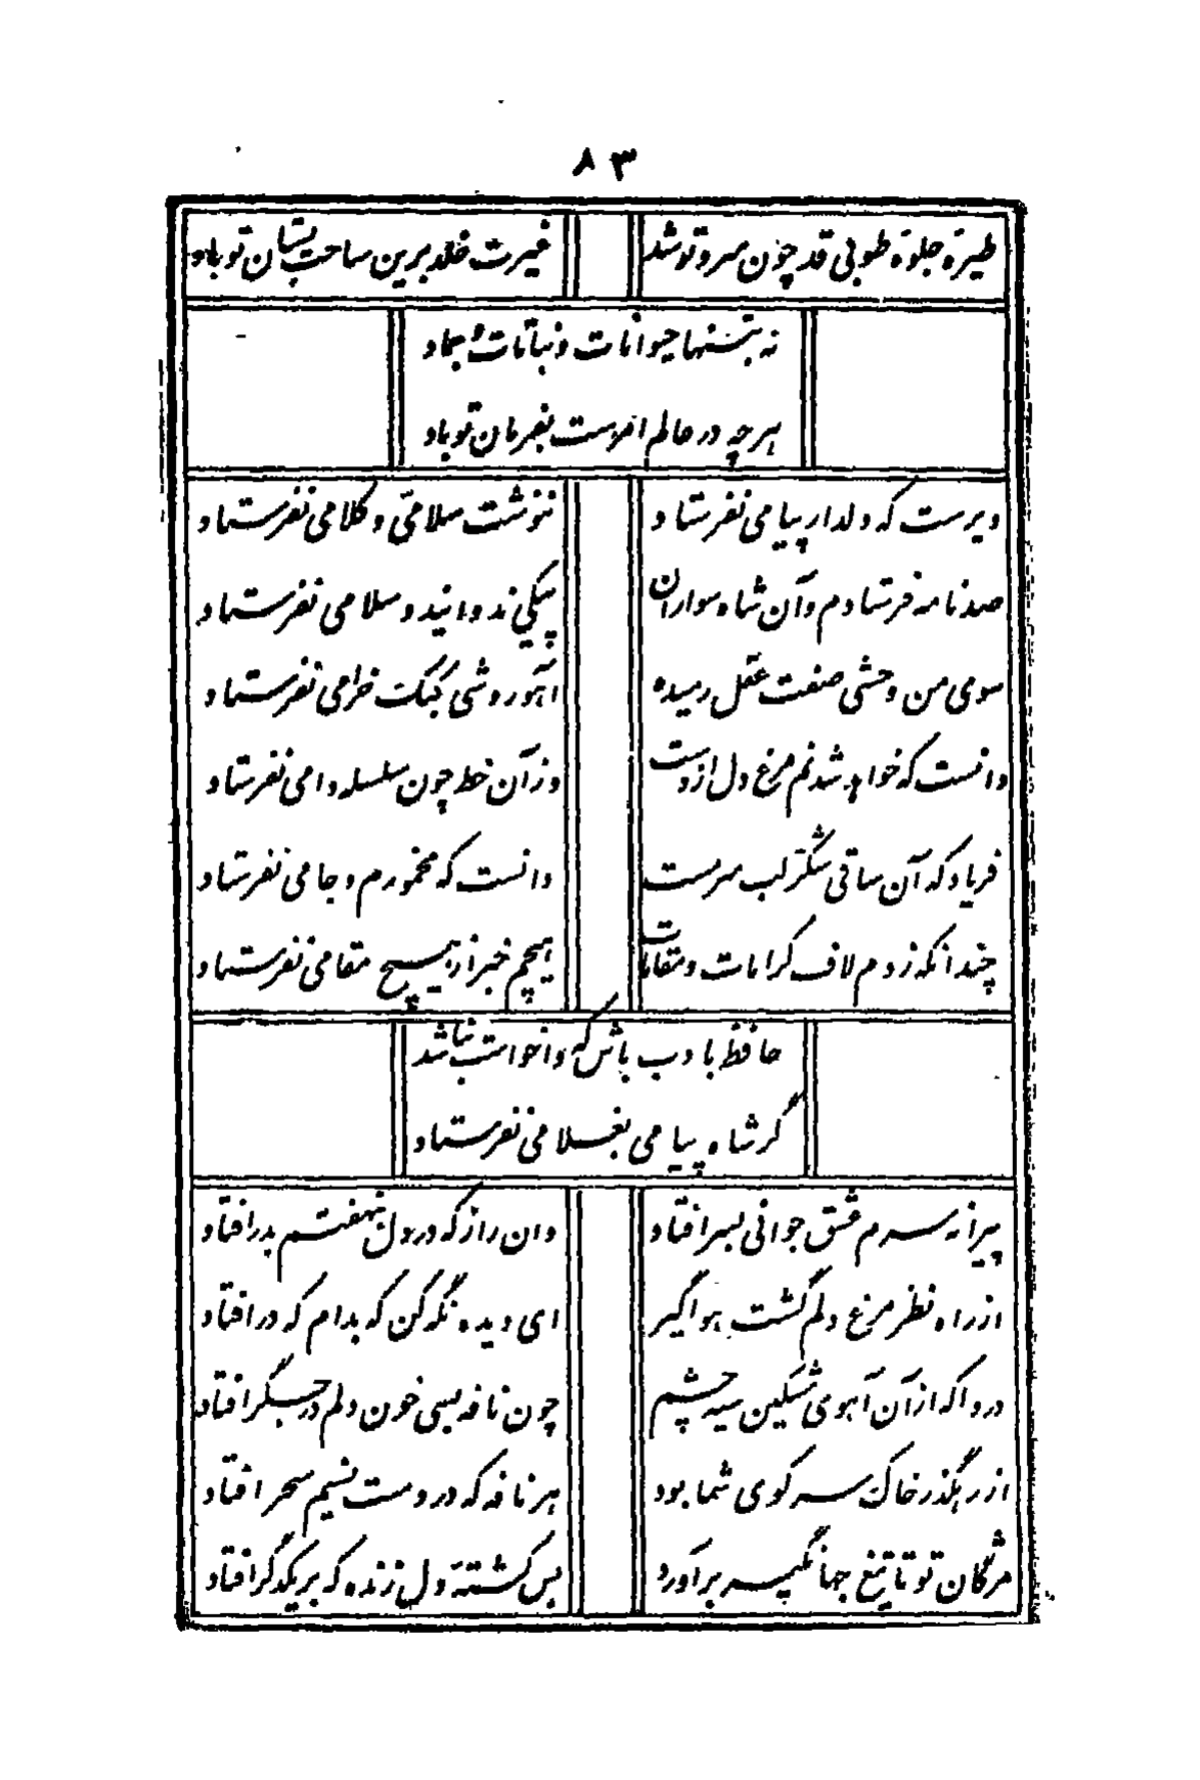 ۸۳
طیرهٔ جلوهٔ طوبی قد چون سرو تو شد
غیرت خلد برین ساحت بستان تو باد
نه بتنها حیوانات و نباتات و جماد
هر چه در عالم امرست بفرمان تو باد
دیرست که دلدار پیامی نفرستاد
ننوشت سلامی و کلامی نفرستاد
صد نامه فرستادم و آن شاه سواران
پیکی ندوانید و سلامی نفرستاد
سوی من وحشی صفت عقل رمیده
آهو روشی کبک خرامی نفرستاد
دانست که خواهد شدنم مرغ دل از دست
وز آن خط چون سلسله دامی نفرستاد
فریاد که آن ساقی شکر لب سرمست
دانست که مخمورم و جامی نفرستاد
چندانکه زدم لاف کرامات و مقامات
هیچم خبر از هیچ مقامی نفرستاد
حافظ بادب باش که واخواست نباشد
گر شاه پیامی بغلامی نفرستاد
پیرانه سرم عشق جوانی بسر افتاد
وان راز که در دل بنهفتم بدر افتاد
از راه نظر مرغ دلم گشت هوا گیر
ای دیده نگه کن که بدام که در افتاد
دردا که از آن آهوی مشکین سیه چشم
چون نافه بسی خون دلم در جگر افتاد
از رهگذر خاک سر کوی شما بود
هر نافه که در دست نسیم سحر افتاد
مژگان تو تا تیغ جهانگیر بر آورد
بس کشتهٔ دل زنده که بر یکدگر افتاد